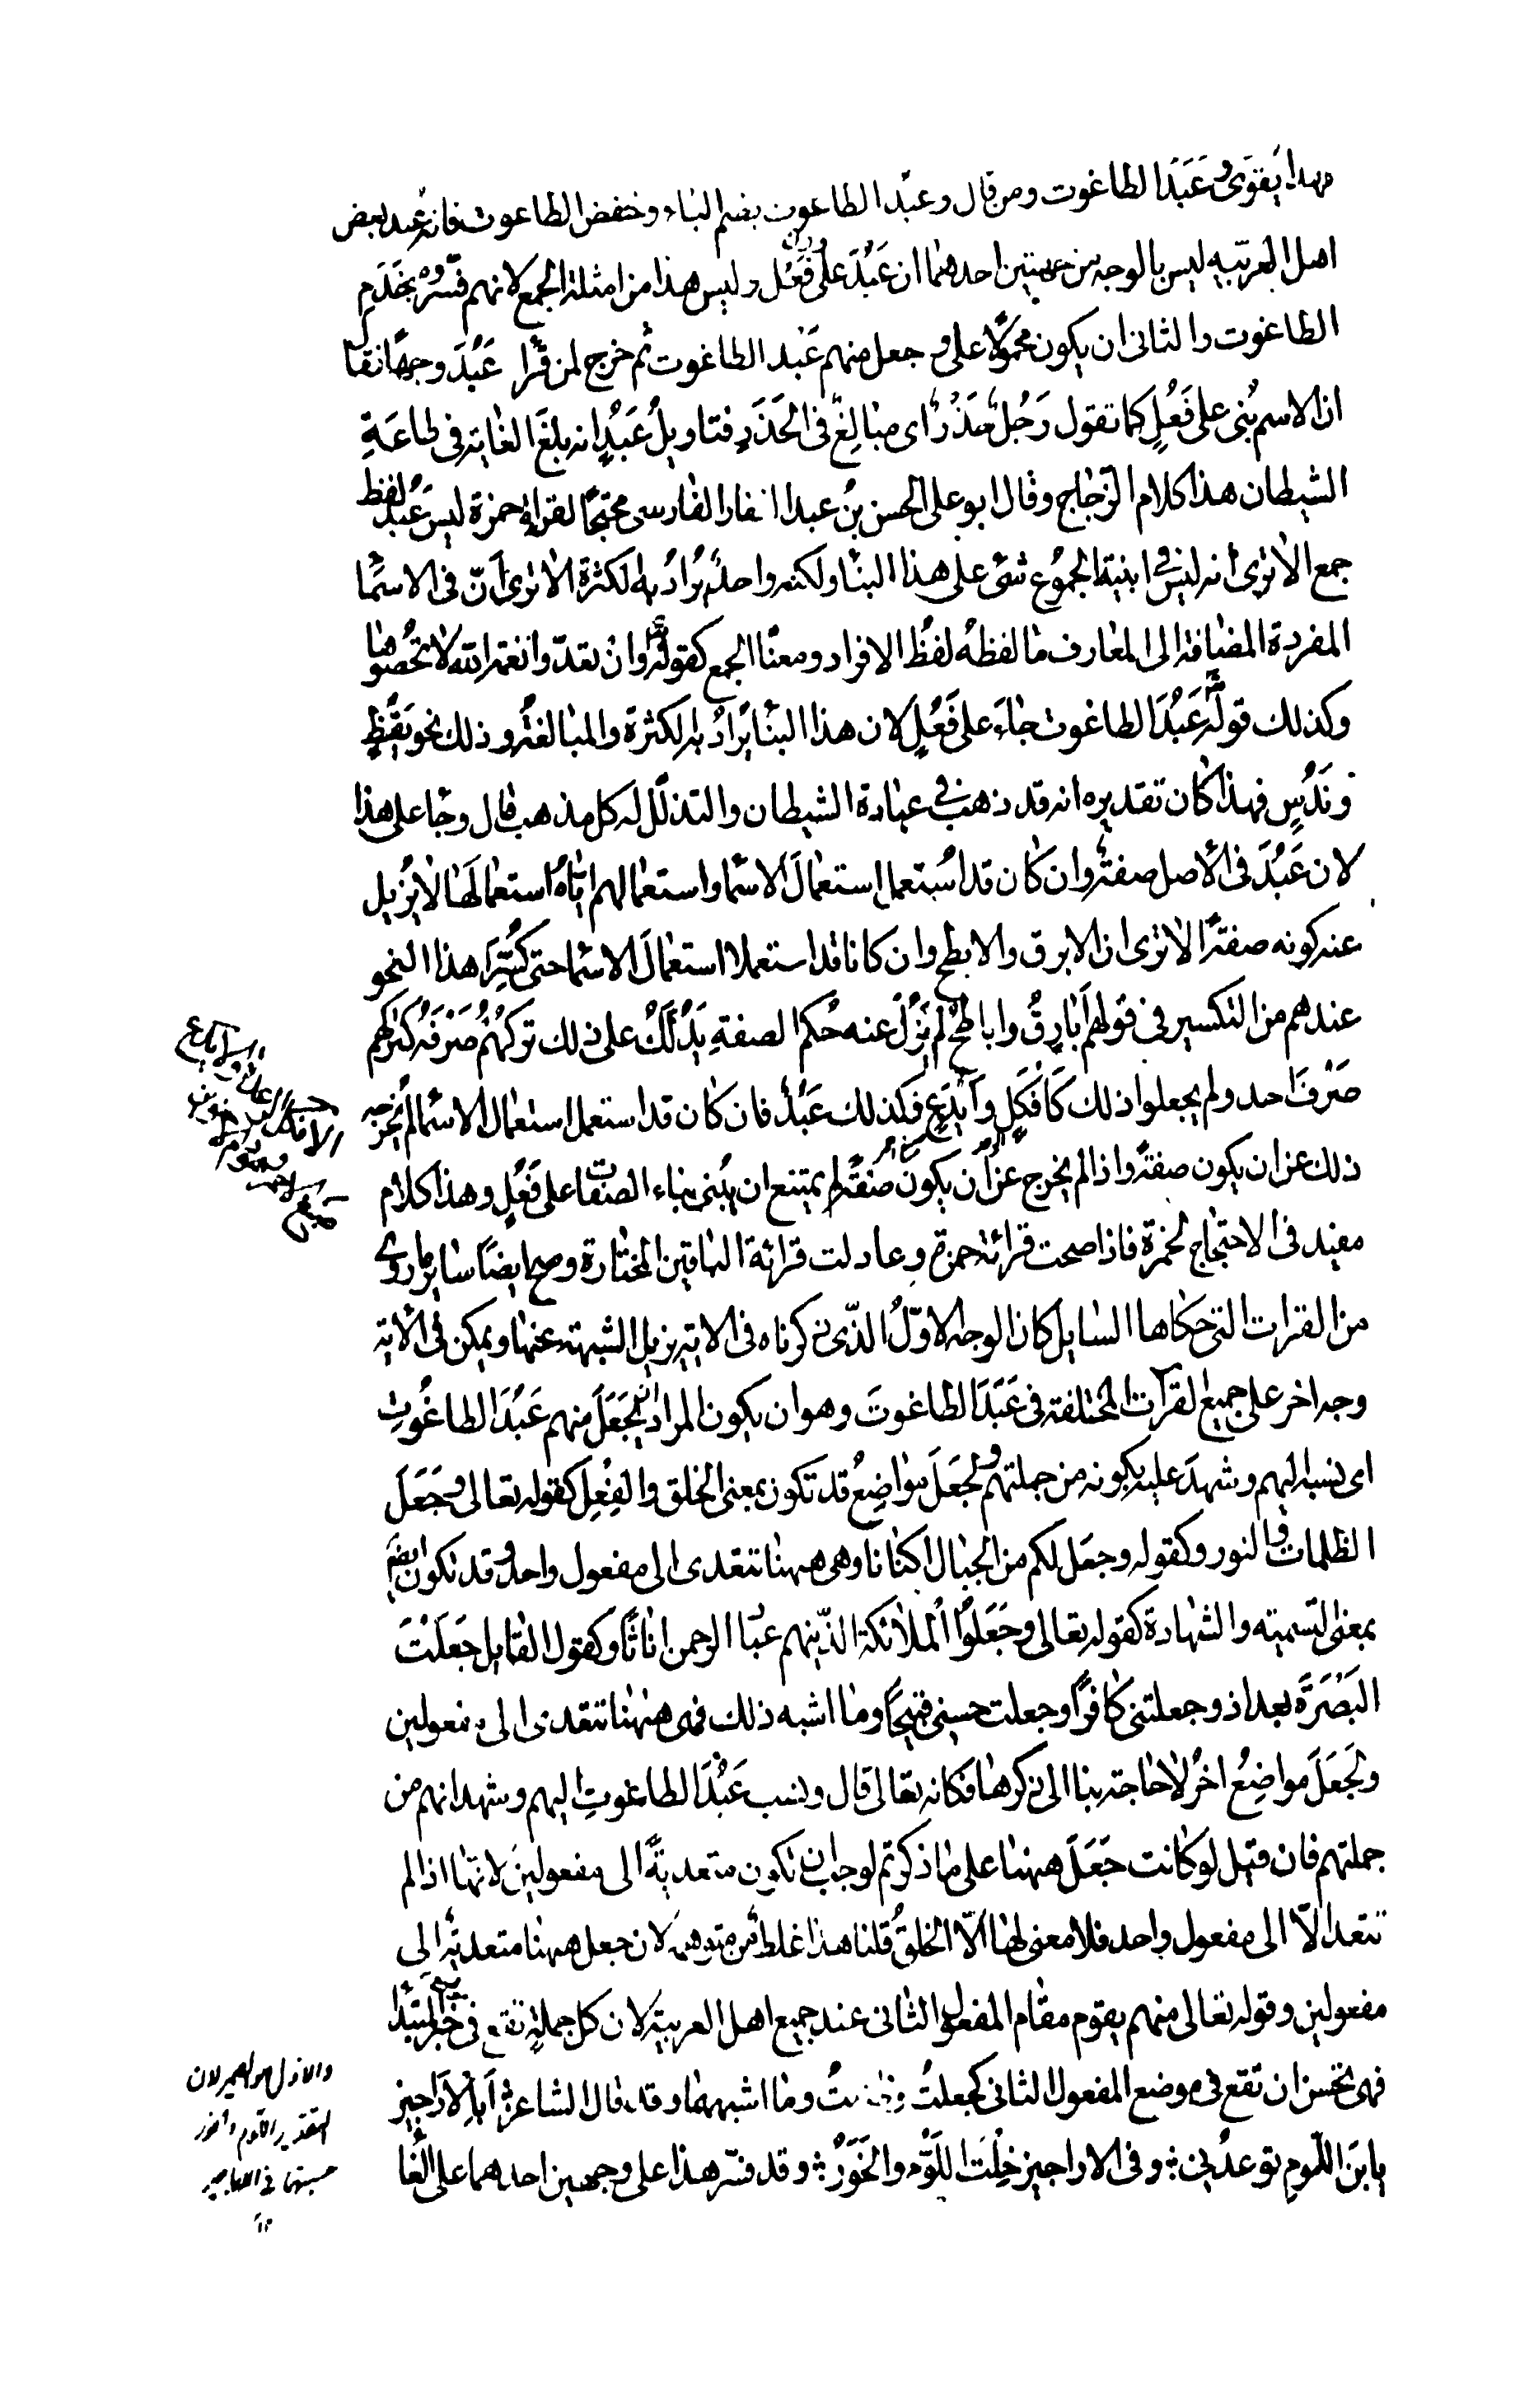 بهذا يقوى وعَبَدَ الطاغوت ومن قال وعبُد الطاغوت بضم الباء وخفض الطاغوت فانه عند بعض
اهل العربيه ليس بالوجه من جهتين احدهما ان عَبُدَ على وزن فَعُل وليس هذا من امثلة الجمع لانهم فسّروه بخَدَم
الطاغوت والثانى ان يكون محمولًا على و جعل منهم عَبُد الطاغوت ثم خرج لمن قرأ عَبُدَ وجهًا فقال
ان الاسم بُنى على فَعُلٍ كما تقول رَجُلٌ حَذُرٌ اى مبالِغٌ فى الحَذَرِ فتاويلُ عَبُدٍ انه بلغَ الغاية فى طاعَةِ
الشيطان هذا كلام الزجاج وقال ابو على الحسن بنُ عبد الغفار الفارسى محتجًا لقراءة حمزة ليس عَبُد لفظ
جمع الا ترى انه ليس فى ابنية الجموُع شئ على هذا البنا ولكنه واحدٌ يُرادُ به الكثرة الا ترى انّ فى الاسما
المفردة المضافة الى المعارف ما لفظهُ لفظُ الافراد ومعناه الجمع كقوله تع وان تعدّوا نعمة الله لا تحصوها
وكذلك قوله تع عَبُدَ الطاغوت جاءَ على فَعُلٍ لان هذا البنا يُرادُ به الكثرة والمبالغةُ وذلك نحو يَقُظٍ
ونَدُسٍ فهذا كان تقديره انه قد ذهب فى عبادة الشيطان والتذلّل له كل مذهب قال وجا على هذا
لان عَبُدَ فى الاصل صفةٌ وان كان قد اسُتعمل استعمالَ الاسما واستعمالهم اياهُ استعمالَها لا يُزيل
عنه كونه صفةً الا ترى ان الابرق والابطح وان كانا قد استعملا استعمالَ الاسما حتى كُسِّرَ هذا النحو
عندهم من التكسير فى قولهم أبارِقُ واباطحُ لم يَزُلْ عنه حُكم الصفةِ يَدُلّكَ على ذلك تركُهُم صَرْفَه كتركهم
صَرْفَ احمد ولم يجعلوا ذلك كَأفْكَلٍ وأيْدَعٍ فكذلك عَبُد فان كان قد استعمل استعمال الاسما لم يُخرجه
ذلك عن ان يكون صفةً واذا لم يخرج عن ان يكون صفةً لم يمتنع ان يُبنى بناء الصفات على فَعُلٍ وهذا كلام
مفيد فى الاحتجاج لحمزة فاذا صحت قرائة حمزة وعادلت قرائة الباقين المختارة وصح ايضًا ساير ما روى
من القرات التى حكاها السايل كان الوجه الاوّلُ الذّى ذكرناه فى الاية يزيل الشبهة عنها ويمكن فى الاية
وجه اخر على جميع القرات المختلفة فى عَبَدَ الطاغوتَ وهو ان يكون المراد بجَعَلَ منهم عَبُدَ الطاغُوتِ
اى نسبه اليهم وشهدَ عليه بكونه من جملتهم ولجَعَلَ مواضِعُ قد تكون بمعنى الخلق والفِعْلِ كقوله تعالى وجَعَلَ
الظلمات والنور وكقوله وجعَل لكم من الجبال اكنانا وهى ههنا تتعدى الى مفعول واحد وقد تكون ايضا
بمعنى التسمية والشهادة كقوله تعالى وجَعَلوُا الملائكة الذّينهم عبا الرحمن اناثًا وكقول القايل جَعَلْتَ
البَصْرَة بغداذ وجعلتنى كافرًا وجعلت حسنى قبيحًا وما اشبه ذلك فهى ههنا تتعدى الى مفعولين
ولجَعَلَ مواضِعُ اخرُ لا حاجة بنا الى ذكرها فكانه تعالى قال ونسب عَبُدَ الطاغوتِ اليهم وشهد انهم من
جملتهم فان قيل لو كانت جَعَلَ ههنا على ما ذكرتم لوجب ان تكون متعديةً الى مفعولينَ لانها اذا لم
تتعد الّا الى مفعول واحد فلا معنى لها الّا الخلقُ قلنا هذا غلط من متوهمه لان جعل ههنا متعدية الى
مفعولين وقوله تعالى منهم يقوم مقام المفعول الثانى عند جميع اهل العربية لان كل جملةٍ تقع فى خبر المبتدا
فهى يحسن ان تقع فى موضع المفعول الثانى كجعلتُ وظننتُ وما اشبههما وقد قال الشاعر أبالاراجيز
يا بنَ اللّومِ توعدُنى ؞ وفى الاراجيز خِلْتَ اللّوَّمُ والخَوَرُ ؞ وقد فسّر هذا على وجهين احدهما على الغا
والاول هو
التقدير اللوم والخور